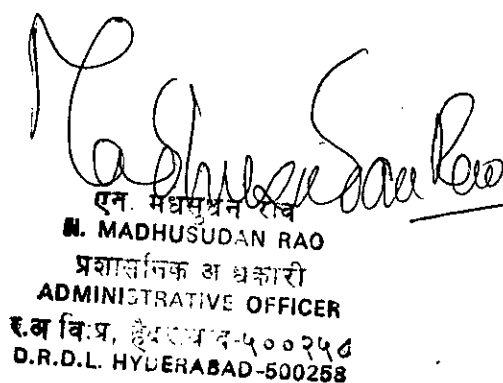 Madhusudan Rao
एन. मधुसुधन राव
N. MADHUSUDAN RAO
प्रशासनिक अधिकारी
ADMINISTRATIVE OFFICER
र.अ वि.प्र, हैदराबाद-५००२५८
D.R.D.L. HYDERABAD-500258